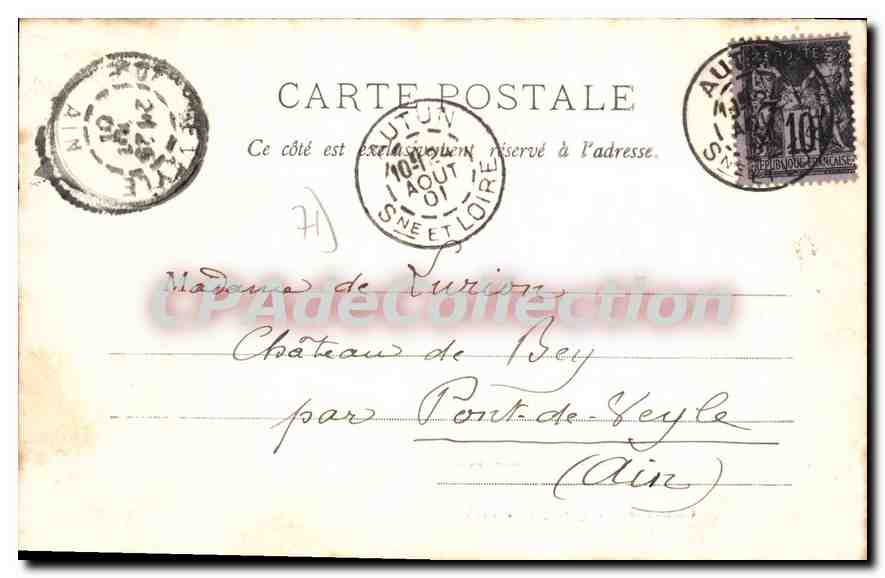 CARTE POSTALE
Ce côté est exclusivement réservé à l'adresse.
AUTUN
AOUT
01
SNE ET LOIRE
AUT
10
REPUBLIQUE FRANÇAISE
AIN
VEYLE
01
71)
Madame de Lurion
CPAdeCollection
Château de Bey
par Pont-de-Veyle
(Ain)